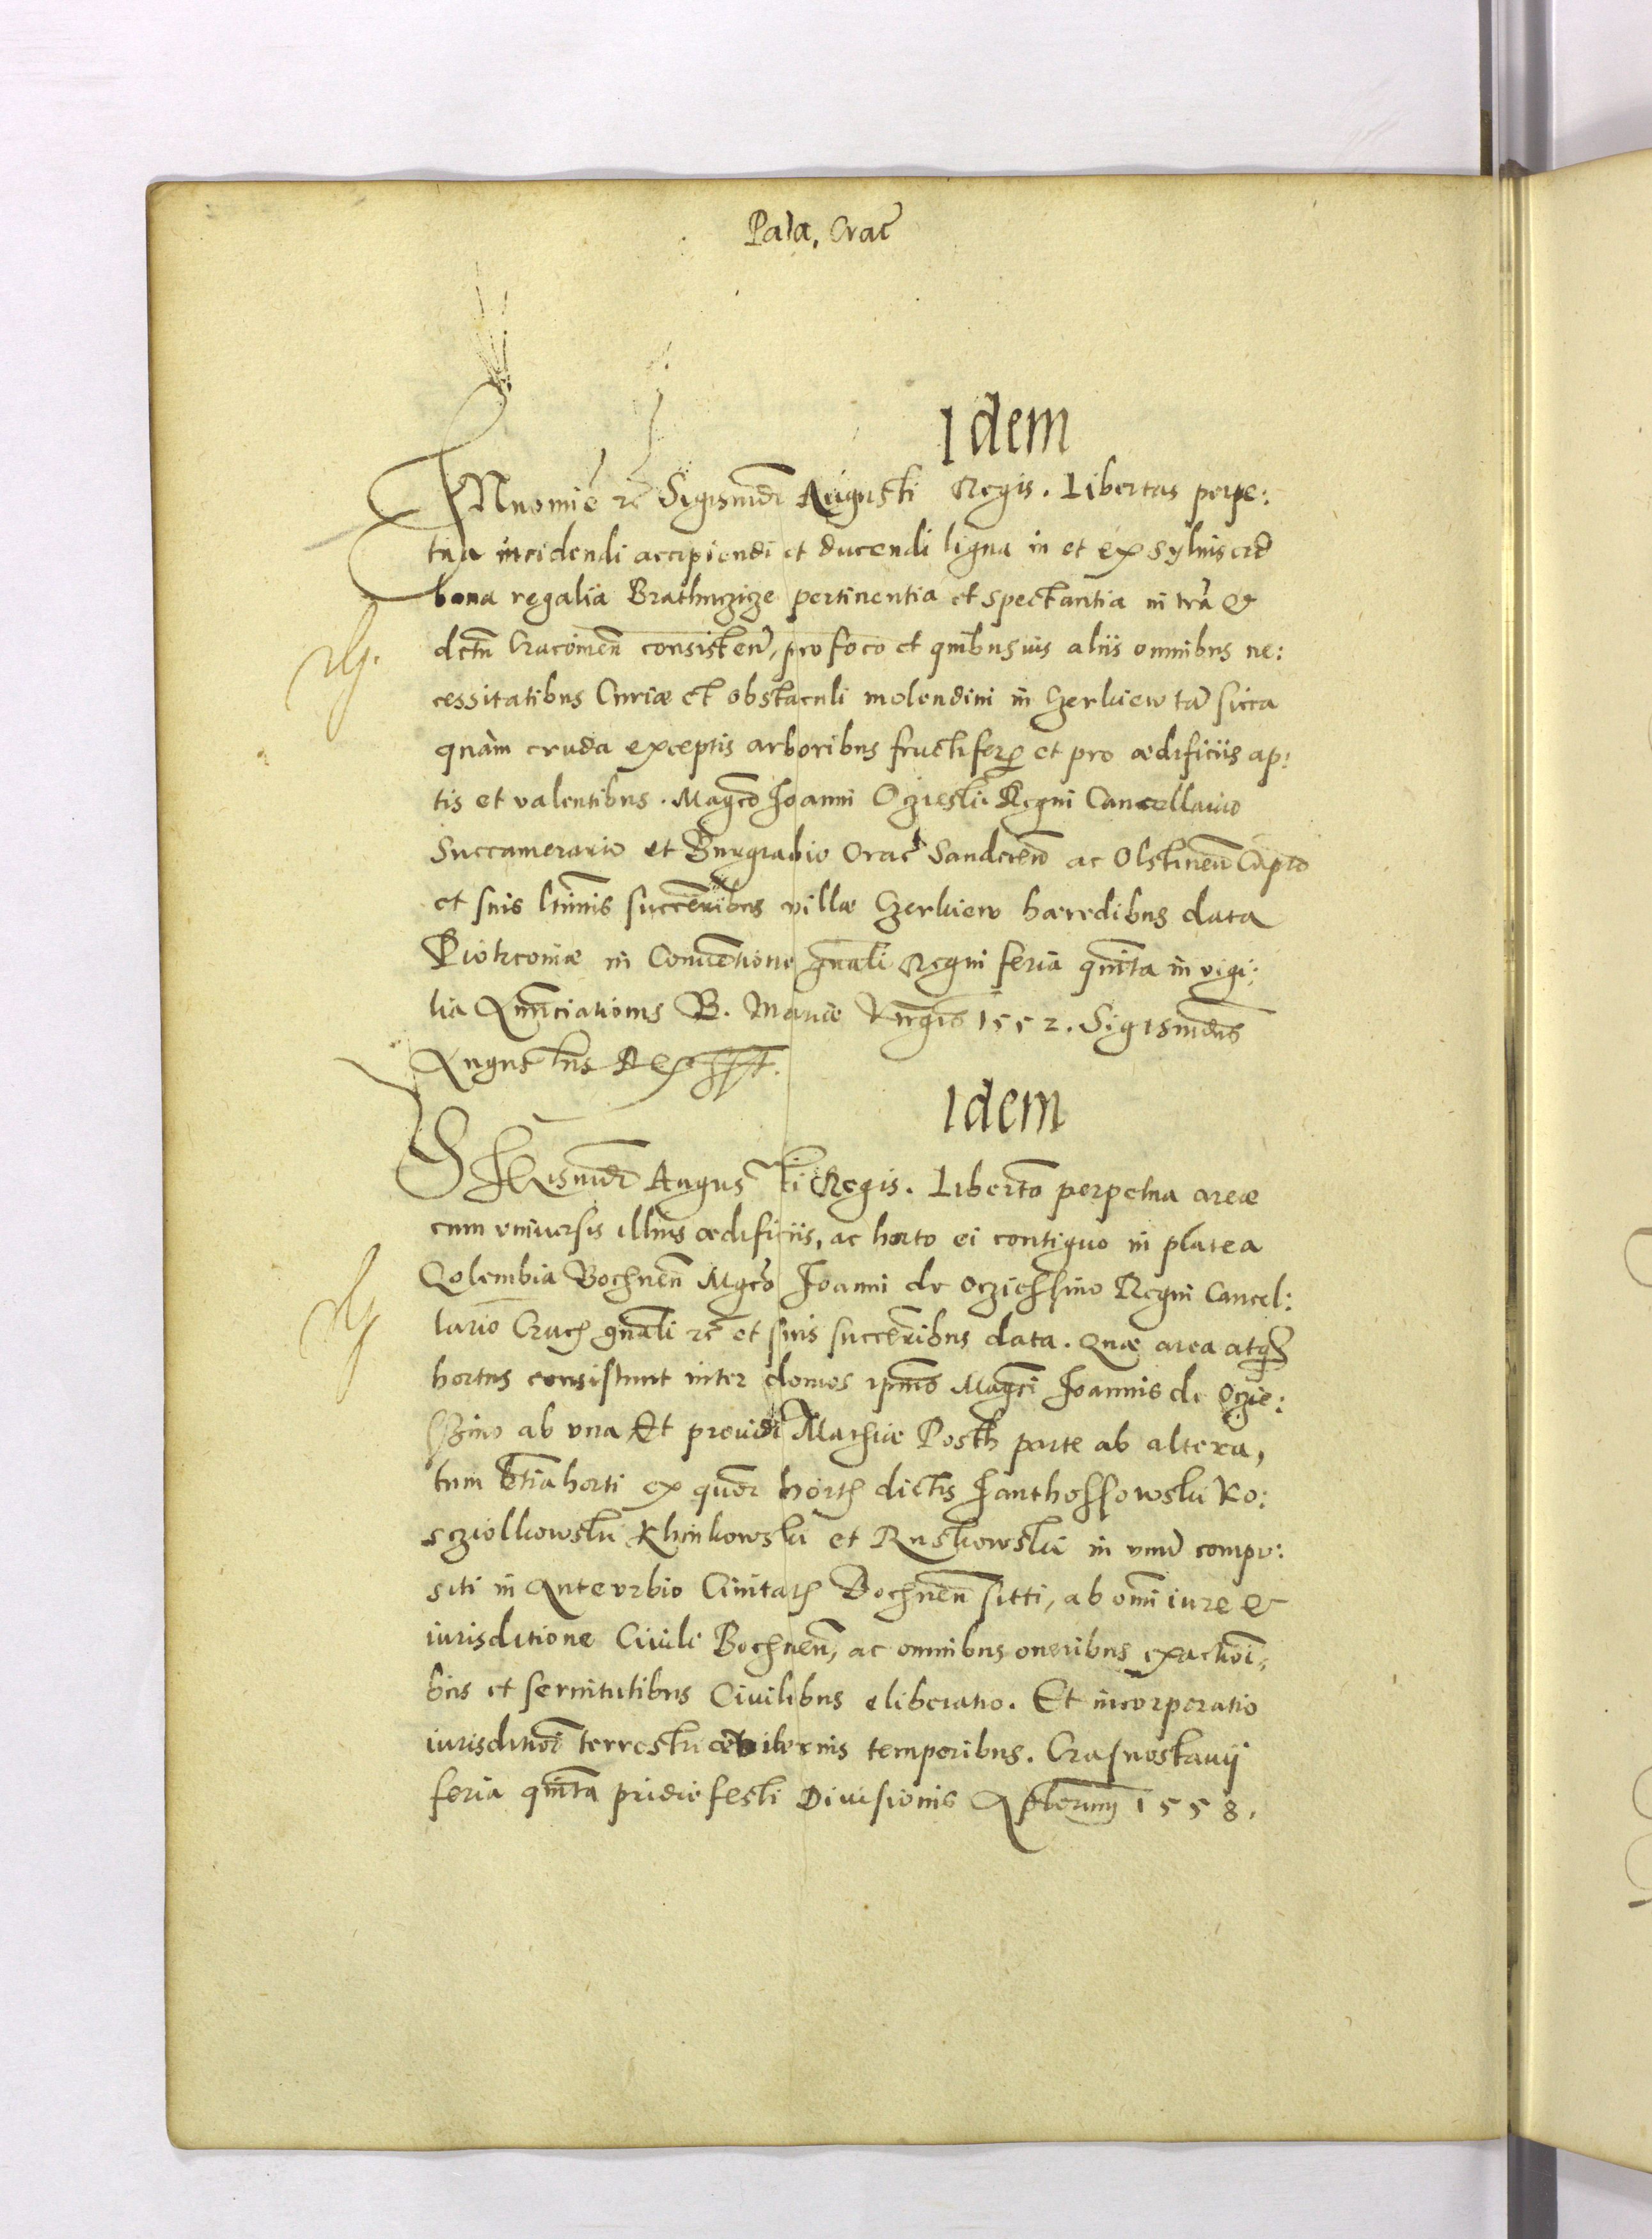 Pala. Crac̄
Idem
IN nomiē ꝛc̄ Sigismūdi Augusti Regis. Libertas perpe:
tua incidendi accipiendi et ducendi ligna in et ex syluis ad
bona regalia Brathuczicze pertinentia et spectantia in trā &
dctū Cracouien̄ consisten̄, pro foco et quibusuis aliis omnibus ne:
cessitatibus Curiæ et obstaculi molendini in Czerkiew tā sicca
quàm cruda exceptis arboribus fructiferꝭ et pro ædificiis ap:
tis et valentibus. Magco Joanni Oczieski Regni Cancellario
Succamerario et Burgrabio Crac̄ Sandecen̄ ac Olstinen̄ Capto
et suis ltīmis succenribus villæ Czerkiew hæredibus data
Piotrcouiæ in Conuentione gnāli Regni feria quīnta in vigi:
lia Annūciationis B. Mariæ Virgīs 1552. Sigismūdus
Augustus Rex sspt.
Idem
Sigismūdi Augusti Regis. Libertō perpetua areæ
cum vniuersis illius ædificiis, ac horto ei contiguo in platea
Golembia Bochnen̄ Mgco Joanni de Oczieschino Regni Cancel:
lario Cracꝭ gnāli ꝛc̄ et suis succenribus data. Quæ area atqꝫ
hortus consistunt inter domos ipīus Magci Joannis de Oczie:
szino ab vna Et prouidi Mathiæ Posth parte ab altera,
tum etiā horti ex quōr hortꝭ dictis Janthossowski Ko:
scziolkowski Khinkowski et Ruskowski in vnū compo:
siti in Anteurbio Ciuitatꝭ Bochnen̄ sitti, ab omī iure &
iurisditione Ciuili Bochnen̄, ac omnibus oneribus exactioī:
bus et seruitutibus Ciuilibus eliberatio. Et incorporatio
iurisditioī terrestri temporibus. Crasnostauij
feria quīnta pridie festi Diuisionis Aplorum 1558.